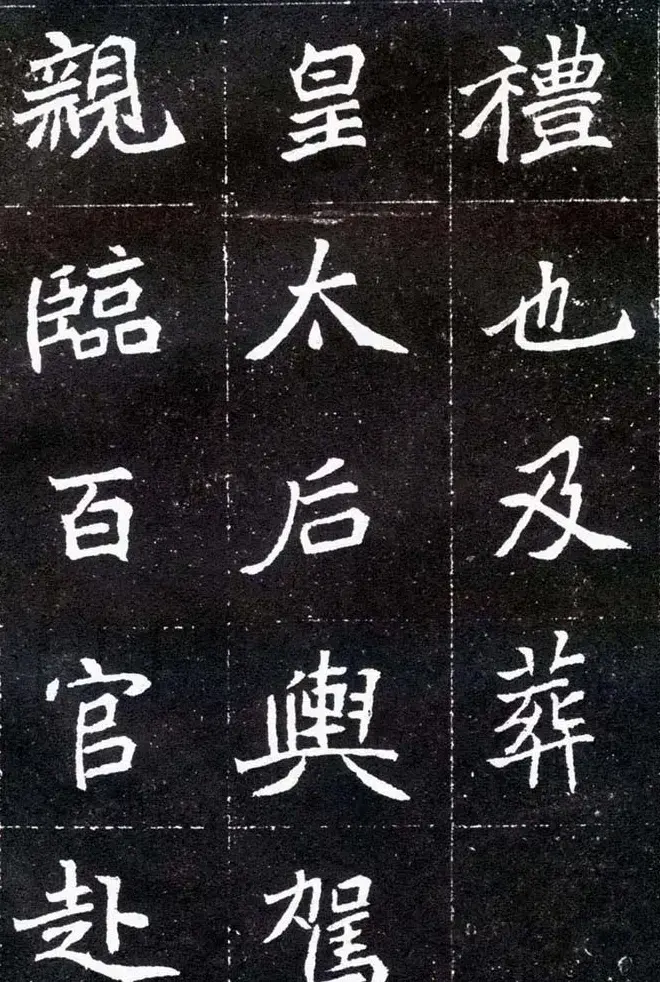 禮也及葬
皇太后輿駕
親臨百官赴